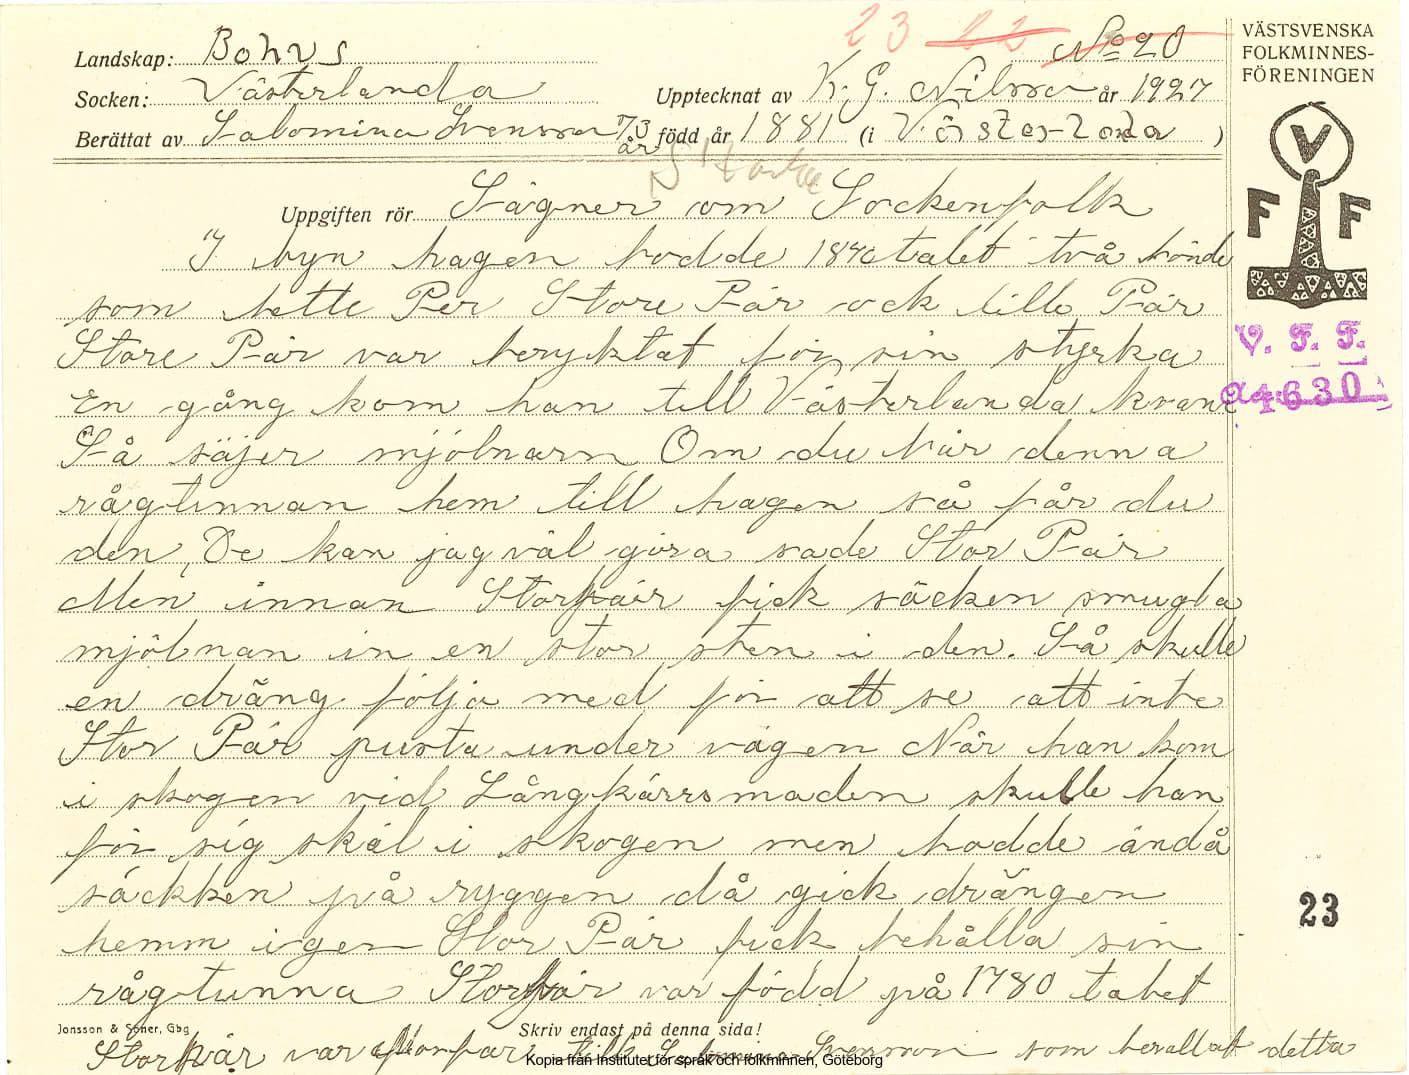 23 22 No 20
Landskap: Bohus
Socken: Västerlanda
Upptecknat av K. G. Nilsson år 1927
Berättat av Salomina Svensson 73 år född år 1881 (i Västerlanda)
Starke
Uppgiften rör Sägner om Sockenfolk
I byn hagen bodde 1840 talet två bönde
som hette Per Store Pär ock lille Pär
Store Pär var beryktat för sin styrka
En gång kom han till Västerlanda kvarn
Så säjer mjölnarn Om du bär denna
rågtunnan hem till hagen så får du
den, De kan jag väl göra sade Stor Pär
Men innan Storpär fick säcken smugla
mjölnan in en stor sten i den. Så skulle
en dräng följa med för att se att inte
Stor Pär pusta under vägen När han kom
i skogen vid Långkärrsmaden skulle han
för sig skäl i skogen men hadde ändå
säckken på ryggen då gick drängen
hemm igen Stor Pär fick behålla sin
rågtunna Storpär var född på 1780 talet
Storpär var till Svensson som berattat detta
Jonsson & Söner, Gbg
Skriv endast på denna sida!
Kopia från Institutet för språk och folkminnen, Göteborg
VÄSTSVENSKA
FOLKMINNES-
FÖRENINGEN
V
F F
V. F. F.
Acc. 1630
23